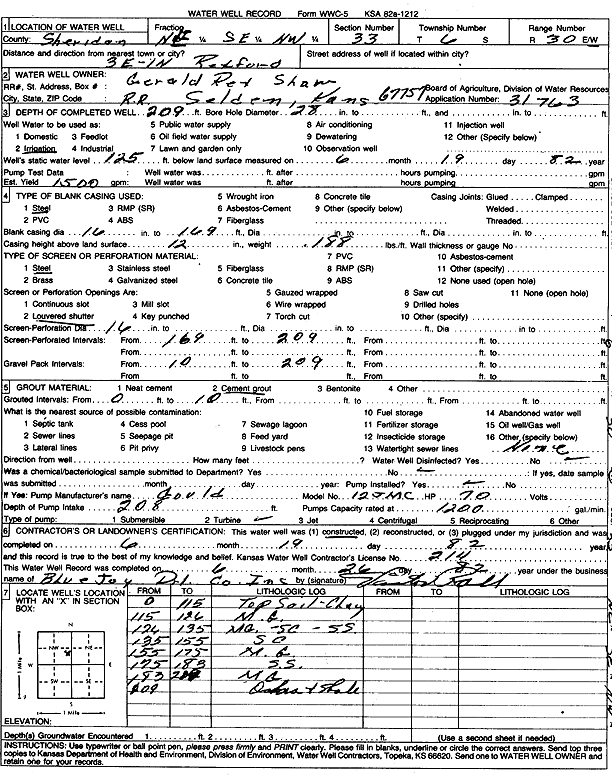 WATER WELL RECORD Form WWC-5 KSA 82a-1212
1 LOCATION OF WATER WELL Fraction Section Number Township Number Range Number
County: Sheridan NE ¼ SE ¼ NW ¼ 33 T 6 S R 30 E/W
Distance and direction from nearest town or city? Street address of well if located within city?
3E-1N Rexford
2 WATER WELL OWNER: Gerald Rex Shaw
RR#, St. Address, Box #: R.R. Board of Agriculture, Division of Water Resources
City, State, ZIP Code: Selden, Kans 67757 Application Number: 31,763
3 DEPTH OF COMPLETED WELL 209 ft. Bore Hole Diameter 28 in. to ft., and in. to ft.
Well Water to be used as: 5 Public water supply 8 Air conditioning 11 Injection well
1 Domestic 3 Feedlot 6 Oil field water supply 9 Dewatering 12 Other (Specify below)
2 Irrigation 4 Industrial 7 Lawn and garden only 10 Observation well
Well's static water level 125 ft. below land surface measured on 6 month 19 day 82 year
Pump Test Data : Well water was ft. after hours pumping gpm
Est. Yield 1500 gpm: Well water was ft. after hours pumping gpm
4 TYPE OF BLANK CASING USED: 5 Wrought iron 8 Concrete tile Casing Joints: Glued Clamped
1 Steel 3 RMP (SR) 6 Asbestos-Cement 9 Other (specify below) Welded
2 PVC 4 ABS 7 Fiberglass Threaded
Blank casing dia 16 in. to 169 ft., Dia in. to ft., Dia in. to ft.
Casing height above land surface 12 in., weight .188 lbs./ft. Wall thickness or gauge No
TYPE OF SCREEN OR PERFORATION MATERIAL: 7 PVC 10 Asbestos-cement
1 Steel 3 Stainless steel 5 Fiberglass 8 RMP (SR) 11 Other (specify)
2 Brass 4 Galvanized steel 6 Concrete tile 9 ABS 12 None used (open hole)
Screen or Perforation Openings Are: 5 Gauzed wrapped 8 Saw cut 11 None (open hole)
1 Continuous slot 3 Mill slot 6 Wire wrapped 9 Drilled holes
2 Louvered shutter 4 Key punched 7 Torch cut 10 Other (specify)
Screen-Perforation Dia 16 in. to ft., Dia in. to ft., Dia in. to ft.
Screen-Perforated Intervals: From 169 ft. to 209 ft., From ft. to ft.
From ft. to ft., From ft. to ft.
Gravel Pack Intervals: From 10 ft. to 209 ft., From ft. to ft.
From ft. to ft., From ft. to ft.
5 GROUT MATERIAL: 1 Neat cement 2 Cement grout 3 Bentonite 4 Other
Grouted Intervals: From 0 ft. to 10 ft., From ft. to ft., From ft. to ft.
What is the nearest source of possible contamination: 10 Fuel storage 14 Abandoned water well
1 Septic tank 4 Cess pool 7 Sewage lagoon 11 Fertilizer storage 15 Oil well/Gas well
2 Sewer lines 5 Seepage pit 8 Feed yard 12 Insecticide storage 16 Other (specify below)
3 Lateral lines 6 Pit privy 9 Livestock pens 13 Watertight sewer lines None
Direction from well How many feet ? Water Well Disinfected? Yes No
Was a chemical/bacteriological sample submitted to Department? Yes No If yes, date sample
was submitted month day year: Pump Installed? Yes No
If Yes: Pump Manufacturer's name Gould Model No. 12JMC HP 70 Volts
Depth of Pump Intake 208 ft. Pumps Capacity rated at 1200 gal./min.
Type of pump: 1 Submersible 2 Turbine 3 Jet 4 Centrifugal 5 Reciprocating 6 Other
6 CONTRACTOR'S OR LANDOWNER'S CERTIFICATION: This water well was (1) constructed, (2) reconstructed, or (3) plugged under my jurisdiction and was
completed on 6 month 19 day 82 year
and this record is true to the best of my knowledge and belief. Kansas Water Well Contractor's License No. 214
This Water Well Record was completed on 6 month 26 day 82 year under the business
name of Blue Jay Drl. Co. Inc by (signature)
7 LOCATE WELL'S LOCATION WITH AN "X" IN SECTION BOX: FROM TO LITHOLOGIC LOG FROM TO LITHOLOGIC LOG
0 115 Top Soil-Clay
115 126 M.G.
126 135 MG-SC-S.S.
135 155 SC
155 175 M.G.
175 183 S.S.
183 209 MG
209 Ochre + Shale
N
NW NE
W E
SW SE
S
1 Mile
1 Mile
ELEVATION:
Depth(s) Groundwater Encountered 1 ft. 2 ft. 3 ft. 4 ft. (Use a second sheet if needed)
INSTRUCTIONS: Use typewriter or ball point pen, please press firmly and PRINT clearly. Please fill in blanks, underline or circle the correct answers. Send top three
copies to Kansas Department of Health and Environment, Division of Environment, Water Well Contractors, Topeka, KS 66620. Send one to WATER WELL OWNER and
retain one for your records.